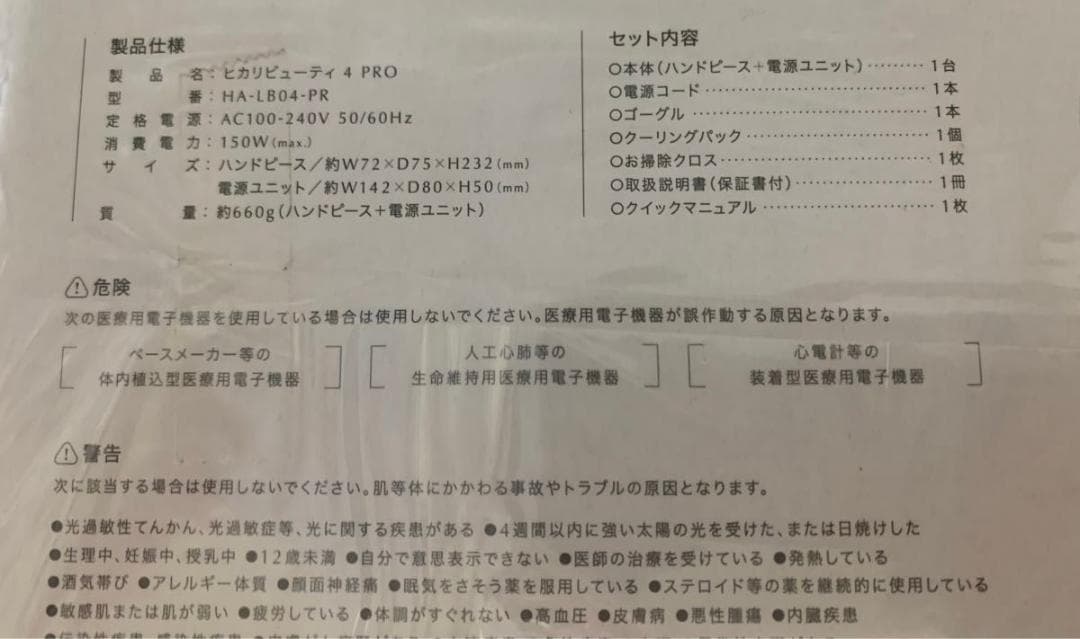 製品仕様
製品名：ヒカリビューティ 4 PRO
型番：HA-LB04-PR
定格電源：AC100-240V 50/60Hz
消費電力：150W(max.)
サイズ：ハンドピース／約W72×D75×H232(mm)
電源ユニット／約W142×D80×H50(mm)
質量：約660g(ハンドピース＋電源ユニット)
セット内容
○本体(ハンドピース＋電源ユニット)………1台
○電源コード………1本
○ゴーグル………1本
○クーリングパック………1個
○お掃除クロス………1枚
○取扱説明書(保証書付)………1冊
○クイックマニュアル………1枚
⚠危険
次の医療用電子機器を使用している場合は使用しないでください。医療用電子機器が誤作動する原因となります。
ペースメーカー等の
体内植込型医療用電子機器
人工心肺等の
生命維持用医療用電子機器
心電計等の
装着型医療用電子機器
⚠警告
次に該当する場合は使用しないでください。肌等体にかかわる事故やトラブルの原因となります。
●光過敏性てんかん、光過敏症等、光に関する疾患がある ●4週間以内に強い太陽の光を受けた、または日焼けした
●生理中、妊娠中、授乳中 ●12歳未満 ●自分で意思表示できない ●医師の治療を受けている ●発熱している
●酒気帯び ●アレルギー体質 ●顔面神経痛 ●眠気をさそう薬を服用している ●ステロイド等の薬を継続的に使用している
●敏感肌または肌が弱い ●疲労している ●体調がすぐれない ●高血圧 ●皮膚病 ●悪性腫瘍 ●内臓疾患